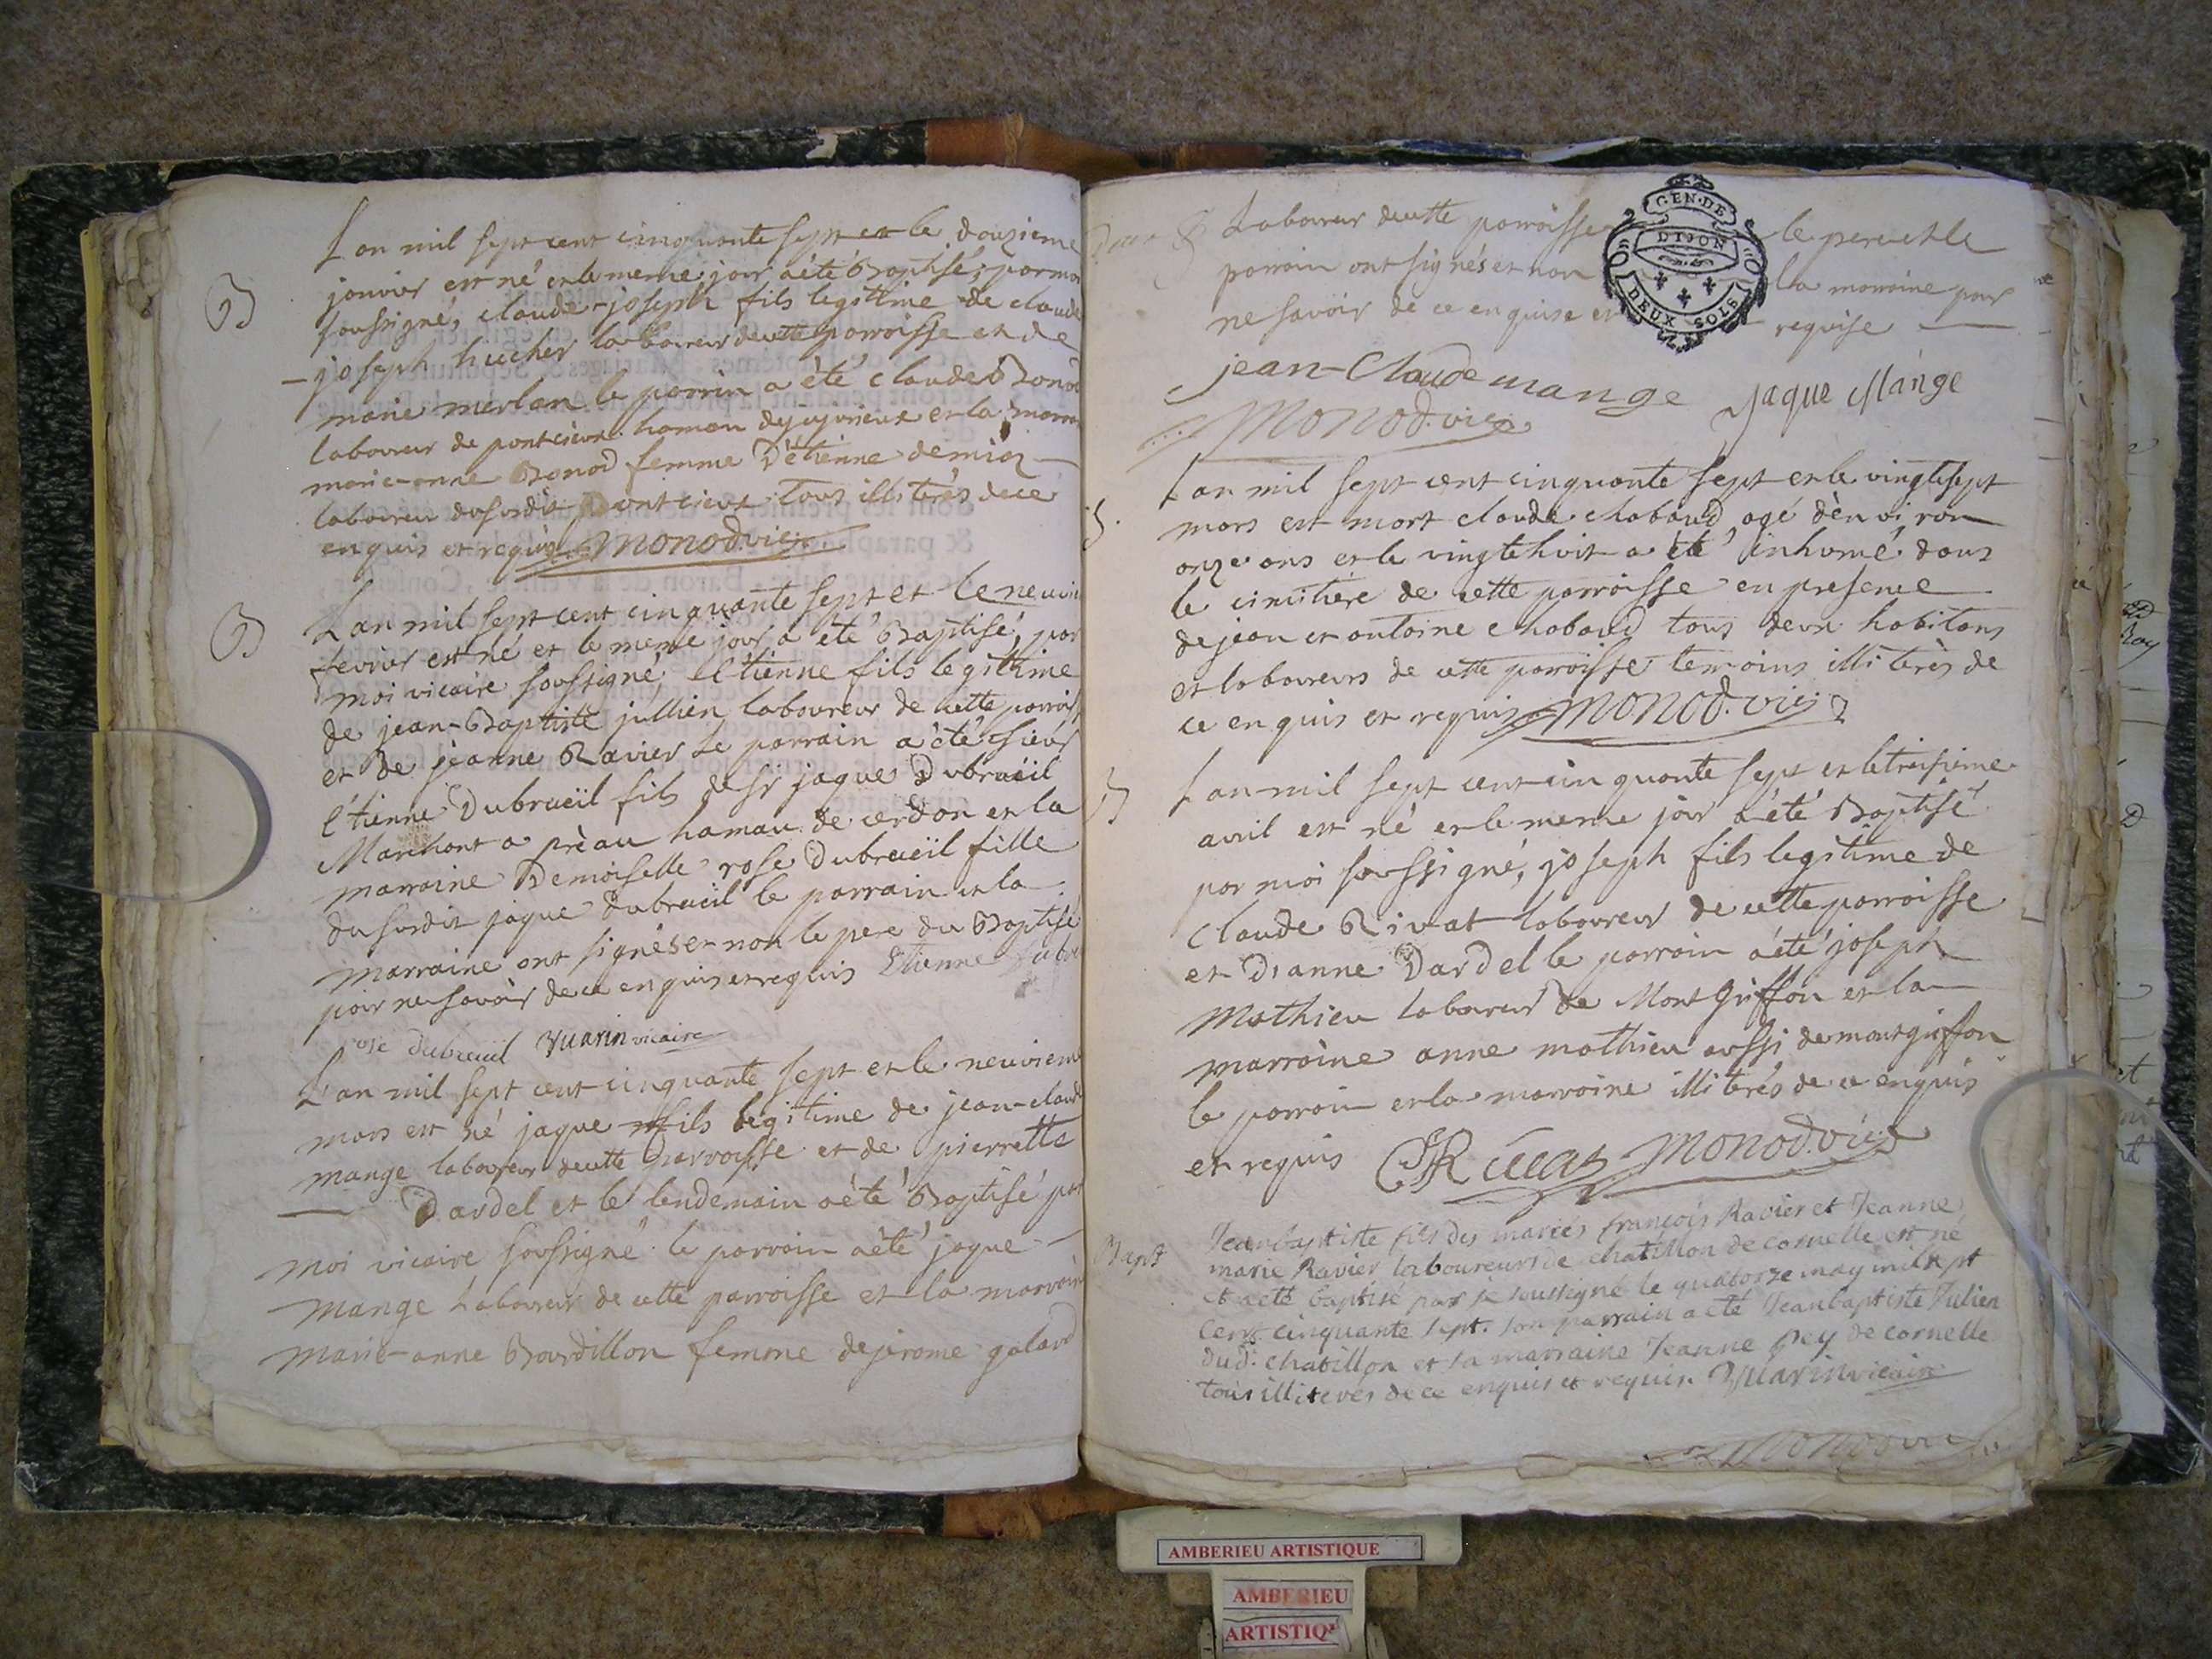 L'an mil sept cent cinquante sept et le douzieme
B
janvier est né et le meme jour a été Baptisé, par moi
soussigné, claude-joseph fils legitime de claude
joseph hucher laboureur de cette parroisse et de
marie merlan le parrin a été claude Bonod
laboureur de pontcieux hamau de jujurieux et la marr
marie-anne Bonod femme D'étienne demiaz
laboureur du susdit pontcieux tous illiterés de ce
enquis et requis Monod. vic
B
L'an mil sept cent cinquante sept et le neuvi
fevrier est né et le meme jour a été Baptisé, par
moi vicaire soussigné, etienne fils legitime
de jean-Baptiste jullien laboureur de cette parroiss
et de jeanne Ravier le parrain a été sieur
étienne Dubrueil fils de sr jaque Dubrueil
Marchant a prèau hamau de cerdon et la
marraine Demoiselle rose Dubrueil fille
du susdit jaque dubrueil le parrain et la
marraine ont signés et non le pere du Baptisé
pour ne savoir de ce enquis et requis Etienne Dubru
rose dubrueil Vuarin vicaire
L'an mil sept cent cinquante sept et le neuvieme
mars est né jaque fils legitime de jean-claude
mange laboureur de cette parroisse et de pierrette
Dardel et le lendemain a été Baptisé par
moi vicaire soussigné le parrain a été jaque
mange Laboureur de cette parroisse et la marraine
marie-anne Bourdillon femme de jerome galard
Laboureur de cette parroisse le pere et le
parrain ont signés et non la marraine pour
ne savoir de ce enquise et requise
GEN. DE
DIJON
DEUX SOLS
jean-Claude mange Jaque Mange
Monod. vic
S.
L'an mil sept cent cinquante sept et le vingtesept
mars est mort claude chabaud agé d'environ
onze ans et le vingtehuit a été inhumé dans
le cimitière de cette parroisse en presence
de jean et antoine chabaud tous deux habitans
et laboureurs de cette parroisse temoins illiterés de
ce enquis et requis Monod. vic
B
L'an mil sept cent cinquante sept et le treisieme
avril est né et le meme jour a été Baptisé
par moi soussigné, joseph fils legitime de
Claude Rivat laboureur de cette parroisse
et D'anne Dardel le parrain a été joseph
Mathieu laboureur de Montgriffon et la
marraine anne mathieu aussi de montgriffon
le parrain et la marraine illiterés de ce enquis
et requis Monod. vic
Bapt
Jean baptiste fils des mariés françois Ravier et Jeanne
marie Ravier laboureurs de chatillon de cornelle est né
et a eté baptisé par je soussigné le quatorze may mil sept
cent cinquante sept. son parrain a eté Jean baptiste Julien
dud. chatillon et sa marraine Jeanne Pey de cornelle
tous illiterés de ce enquis et requis. Vuarin vicaire
AMBERIEU ARTISTIQUE
AMBERIEU
ARTISTIQ